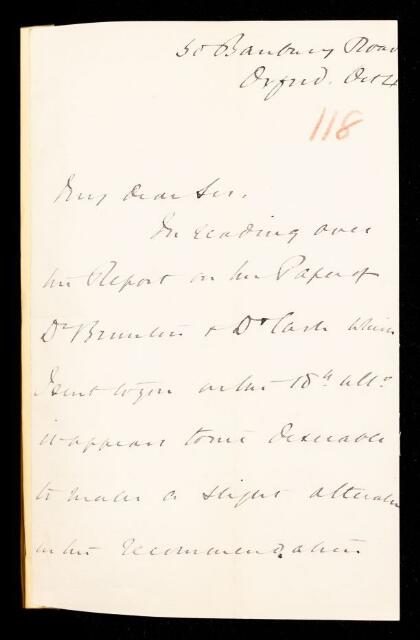 50 Banbury Road
Oxford. Oct 4
118
My dear Sir,
In reading over
the Report on the Paper of
Dr Brunton & Dr Cash which
I sent to you on the 18th ulto
it appears to me desirable
to make a slight alteration
in the recommendation